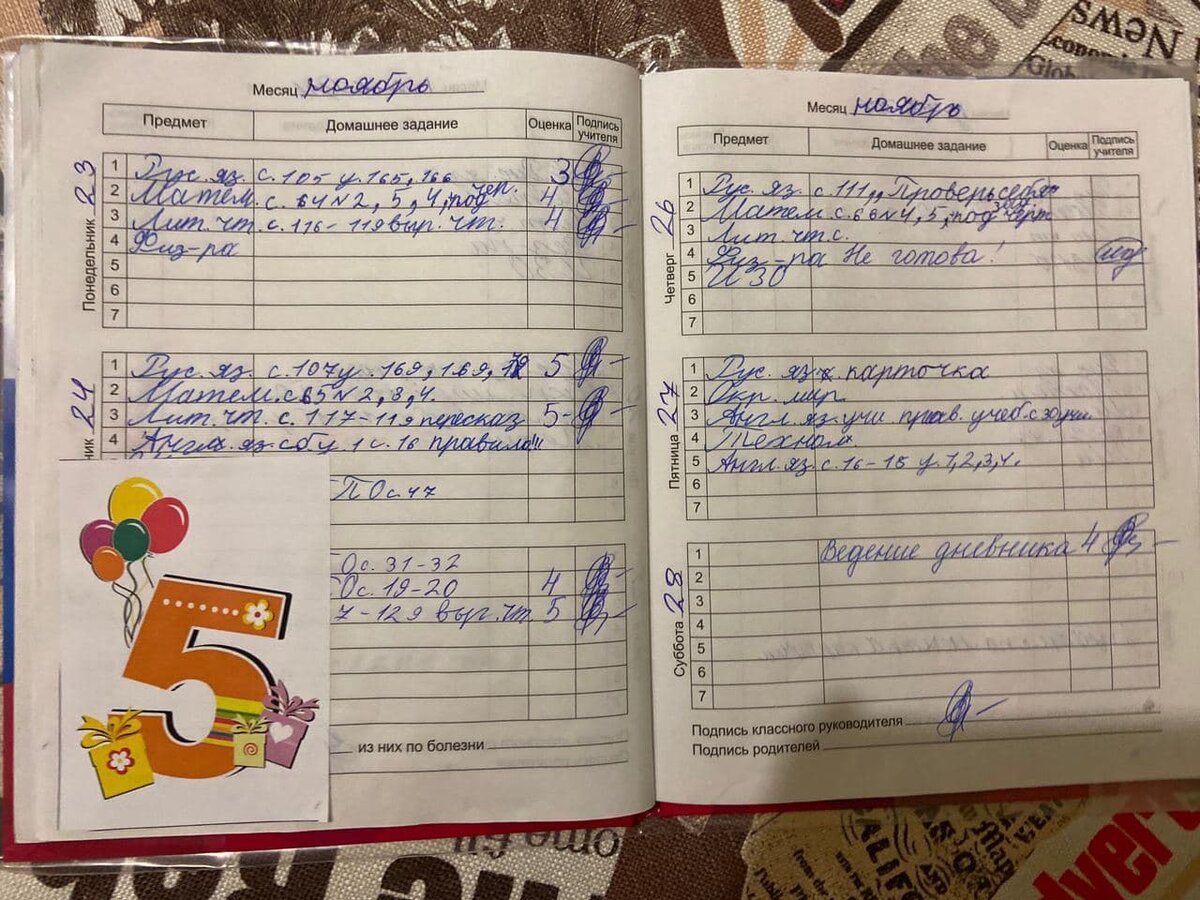 Месяц ноябрь
Предмет Домашнее задание Оценка Подпись учителя
Понедельник 23
1 Рус. яз. с. 105 у. 165, 166 3
2 Матем. с. 64 №2, 5, 4, под чер. 4
3 Лит. чт. с. 116-119 выр. чт. 4
4 Физ-ра
5
6
7
ник 24
1 Рус. яз. с. 107 у. 169, 169, 5
2 Матем. с. 65 №2, 3, 4.
3 Лит. чт. с. 117-119 пересказ 5-
4 Англ. яз. с 1 с. 16 правило!!
ПО с. 47
О с. 31-32
О с. 19-20 4
7-129 выр. чт. 5
5
из них по болезни
Месяц ноябрь
Предмет Домашнее задание Оценка Подпись учителя
Четверг 26
1 Рус. яз. с. 111, „Проверь себя
2 Матем. с. 66 №4, 5, под черт
3 Лит. чт. с.
4 Физ-ра Не готова!
5 ИЗО
6
7
Пятница 27
1 Рус. яз. карточка
2 Окр. мир
3 Англ. яз. учи прав. учеб. с
4 Технол.
5 Англ. яз. с. 16-18 у. 1, 2, 3, 4.
6
7
Суббота 28
1 Ведение дневника 4
2
3
4
5
6
7
Подпись классного руководителя
Подпись родителей
News